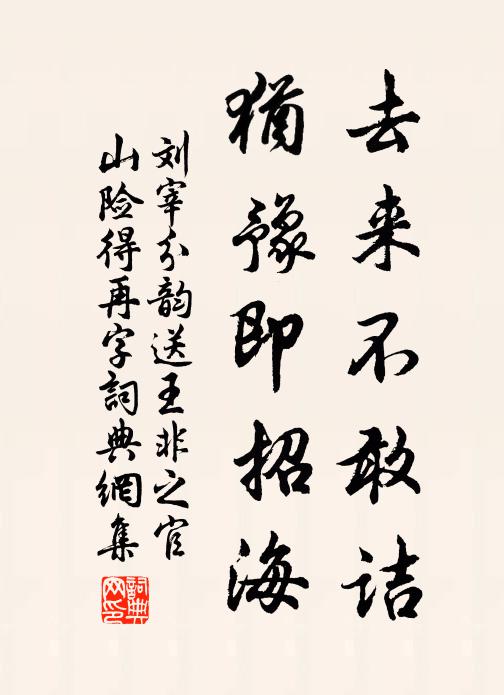 去来不敢诘
犹豫即招海
刘宰分韵送王非之官
山险得再字詞典網集